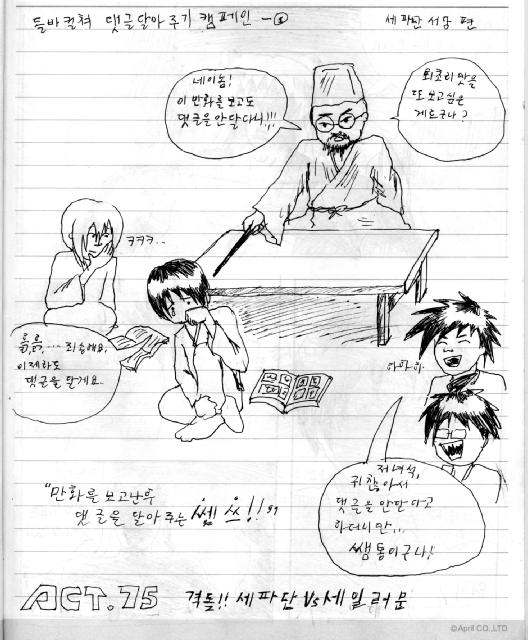 들바컬쳐 댓글달아 주기 캠페인 - ①
세파단 서당 편
네이놈!
이 만화를 보고도
댓글을 안달다니!!!
회초리 맛을
또 보고싶은
게로구나?
ㅋㅋㅋ..
흑,흑,... 죄송해요.
이제라도
댓글을 달게요.
하하하.
저녀석,
귀찮아서
댓글을 안단다고
하더니만...
쌤통이구나!
"만화를 보고난후
댓글을 달아주는 쎈쓰!!"
ACT.75 격돌!! 세파단 Vs 세일러문
©April CO.,LTD